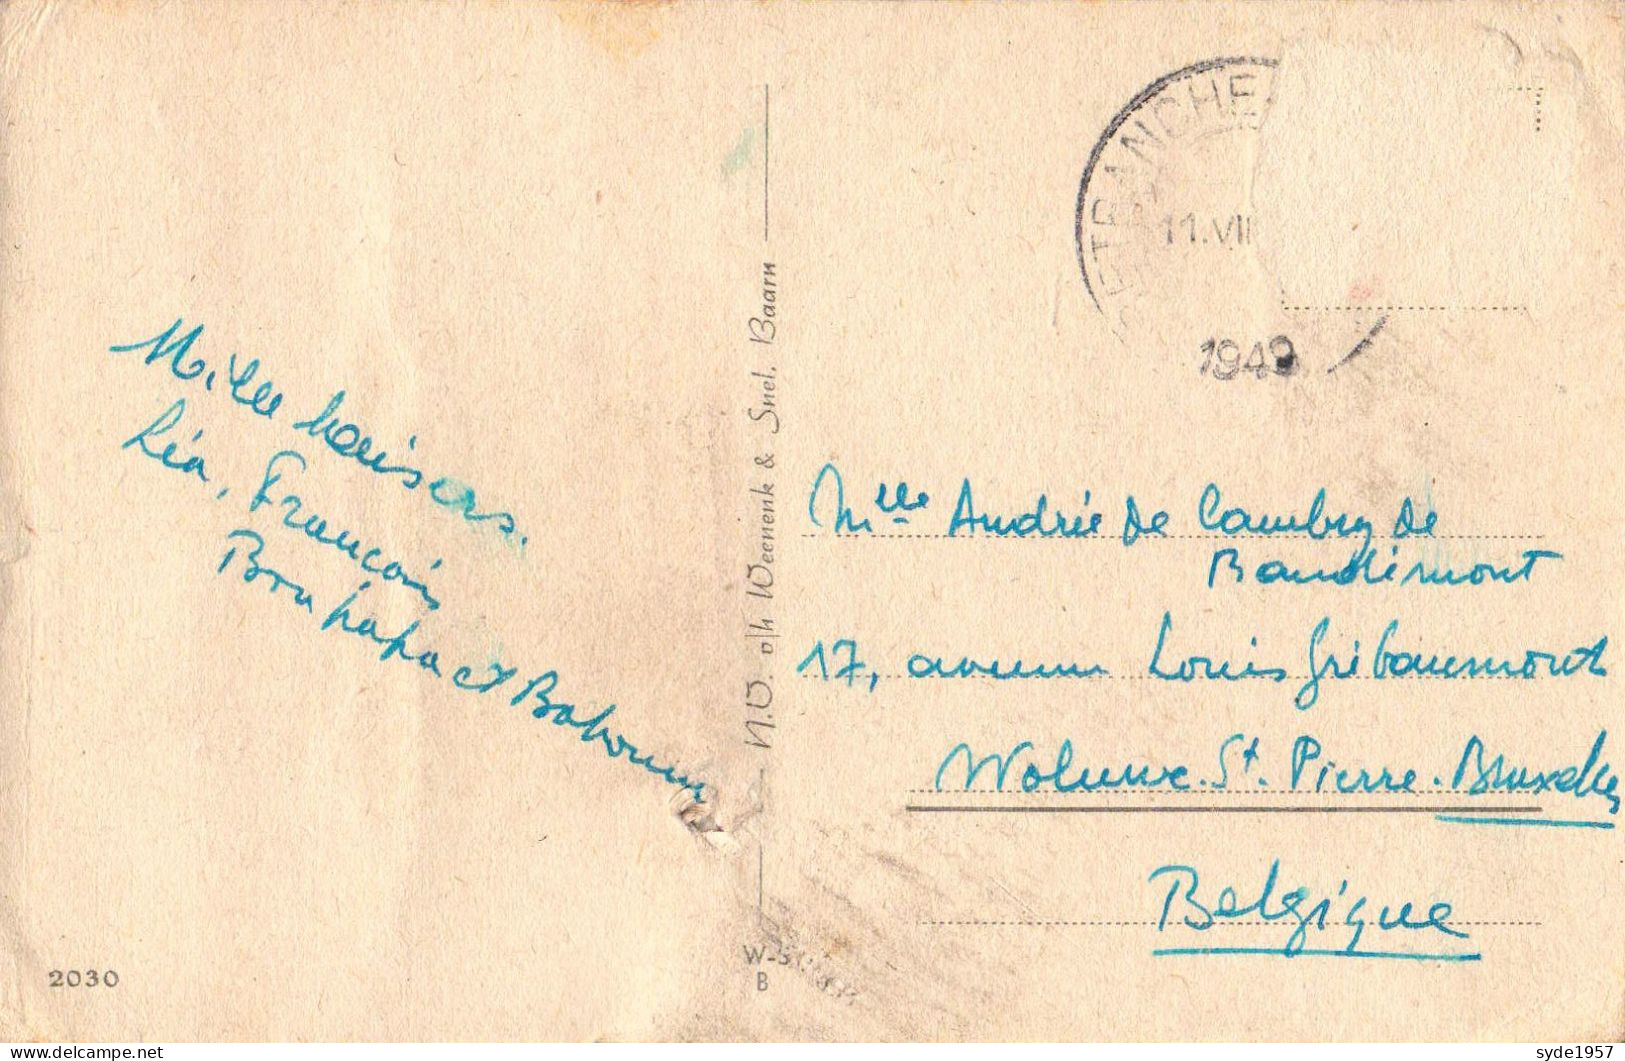 Mille baisers.
Léa, François
Bon papa et Bobonne
2030
N.V. v/h Weenenk & Snel, Baarn
B
ETRANCHE
11.VII
1949
Mlle Andrée de Cambry de
Baudimont
17, avenue Louis Gribaumont
Woluwe-St. Pierre-Bruxelles
Belgique
delcampe.net
syde1957